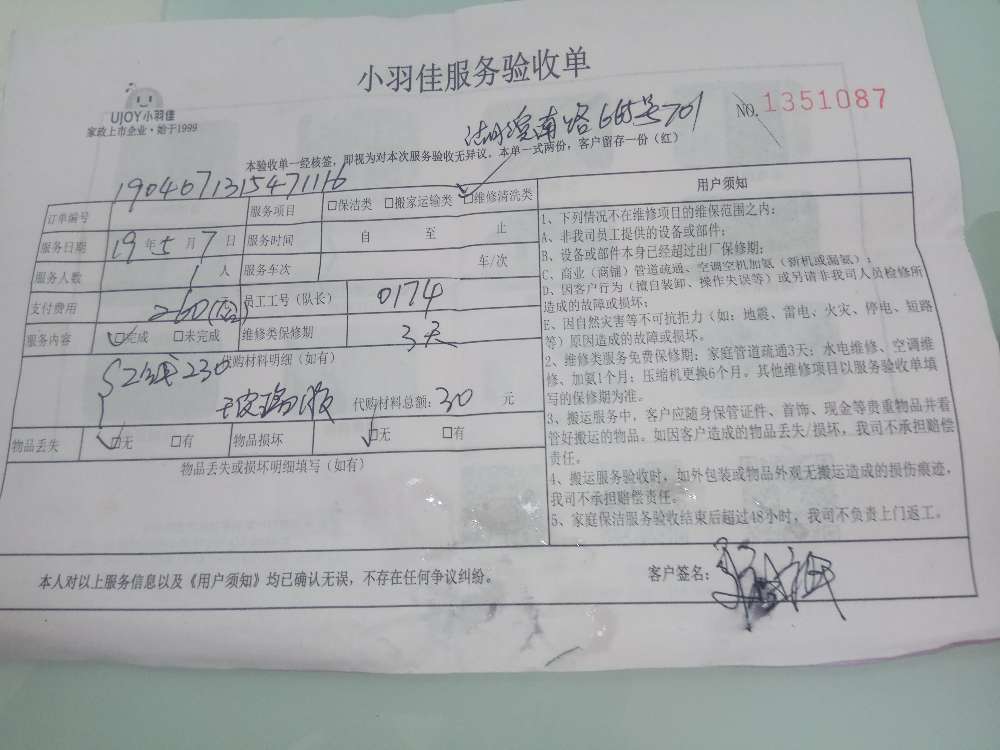 小羽佳服务验收单
UJOY小羽佳
家政上市企业·始于1999
南路665号701
NO. 1351087
本验收单一经核签,即视为对本次服务验收无异议。本单一式两份,客户留存一份(红)
订单编号 1904071315471116 服务项目 □保洁类 □搬家运输类 □维修清洗类
服务日期 19年5月7日 服务时间 自 至 止
服务人数 1人 服务车次 车/次
支付费用 260 员工工号(队长) 0174
服务内容 □完成 □未完成 维修类保修期 3天
代购材料明细(如有)
230
代购材料总额:30元
物品丢失 □无 □有 物品损坏 □无 □有
物品丢失或损坏明细填写(如有)
用户须知
1、下列情况不在维修项目的维保范围之内:
A、非我司员工提供的设备或部件;
B、设备或部件本身已经超过出厂保修期;
C、商业(商铺)管道疏通、空调空机加氨(新机或漏氨);
D、因客户行为(擅自装卸、操作失误等)或另请非我司人员检修所
造成的故障或损坏;
E、因自然灾害等不可抗拒力(如:地震、雷电、火灾、停电、短路
等)原因造成的故障或损坏。
2、维修类服务免费保修期:家庭管道疏通3天;水电维修、空调维
修、加氨1个月;压缩机更换6个月。其他维修项目以服务验收单填
写的保修期为准。
3、搬运服务中,客户应随身保管证件、首饰、现金等贵重物品并看
管好搬运的物品。如因客户造成的物品丢失/损坏,我司不承担赔偿
责任。
4、搬运服务验收时,如外包装或物品外观无搬运造成的损伤痕迹,
我司不承担赔偿责任。
5、家庭保洁服务验收结束后超过48小时,我司不负责上门返工。
本人对以上服务信息以及《用户须知》均已确认无误,不存在任何争议纠纷。
客户签名: